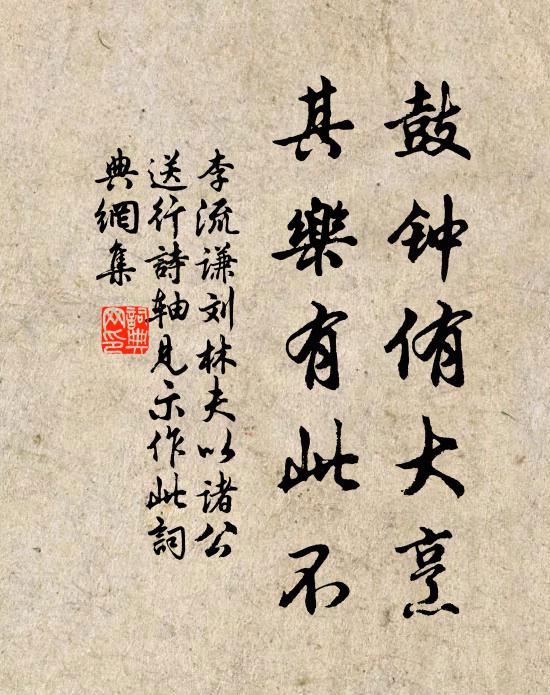 鼓钟侑大烹
其樂有此不
李流谦刘林夫以诸公
送行詩軸見示作此詞
典網集
詞典
网印